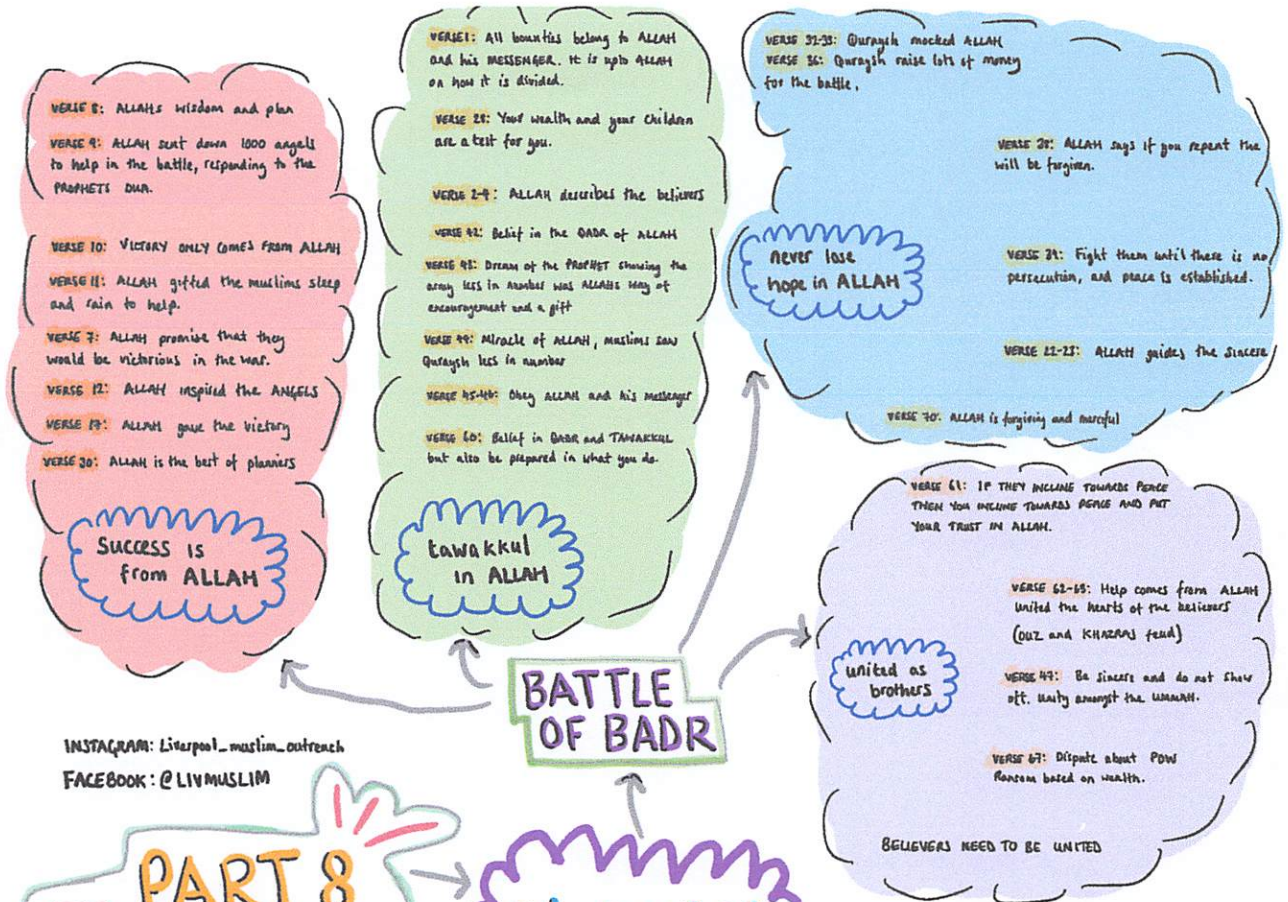 VERSE 8: ALLAHs wisdom and plan
VERSE 9: ALLAH sent down 1000 angels
to help in the battle, responding to the
PROPHETS DUA.
VERSE 10: VICTORY ONLY COMES FROM ALLAH
VERSE 11: ALLAH gifted the muslims sleep
and rain to help.
VERSE 7: ALLAH promise that they
would be victorious in the war.
VERSE 12: ALLAH inspired the ANGELS
VERSE 17: ALLAH gave the victory
VERSE 30: ALLAH is the best of planners
SUCCESS IS
from ALLAH
VERSE 1: All bounties belong to ALLAH
and his MESSENGER. It is upto ALLAH
on how it is divided.
VERSE 28: Your wealth and your children
are a test for you.
VERSE 2-4: ALLAH describes the believers
VERSE 42: Belief in the QADR of ALLAH
VERSE 43: Dream of the PROPHET showing the
army less in number was ALLAHs way of
encouragement and a gift
VERSE 44: Miracle of ALLAH, muslims saw
Quraysh less in number
VERSE 45-46: Obey ALLAH and his messenger
VERSE 60: Belief in QADR and TAWAKKUL
but also be prepared in what you do.
tawakkul
in ALLAH
VERSE 32-33: Quraysh mocked ALLAH
VERSE 36: Quraysh raise lots of money
for the battle,
VERSE 38: ALLAH says if you repent the
will be forgiven.
never lose
hope in ALLAH
VERSE 39: Fight them until there is no
persecution, and peace is established.
VERSE 22-23: ALLAH guides the sincere
VERSE 70: ALLAH is forgiving and merciful
VERSE 61: IF THEY INCLINE TOWARDS PEACE
THEN YOU INCLINE TOWARDS PEACE AND PUT
YOUR TRUST IN ALLAH.
VERSE 62-63: Help comes from ALLAH
united the hearts of the believers
(OUZ and KHAZRAJ feud)
united as
brothers
VERSE 47: Be sincere and do not show
off. Unity amongst the UMMAH.
VERSE 67: Dispute about POW
Ransom based on wealth.
BELIEVERS NEED TO BE UNITED
BATTLE
OF BADR
INSTAGRAM: Liverpool_muslim_outreach
FACEBOOK: @LIVMUSLIM
PART 8